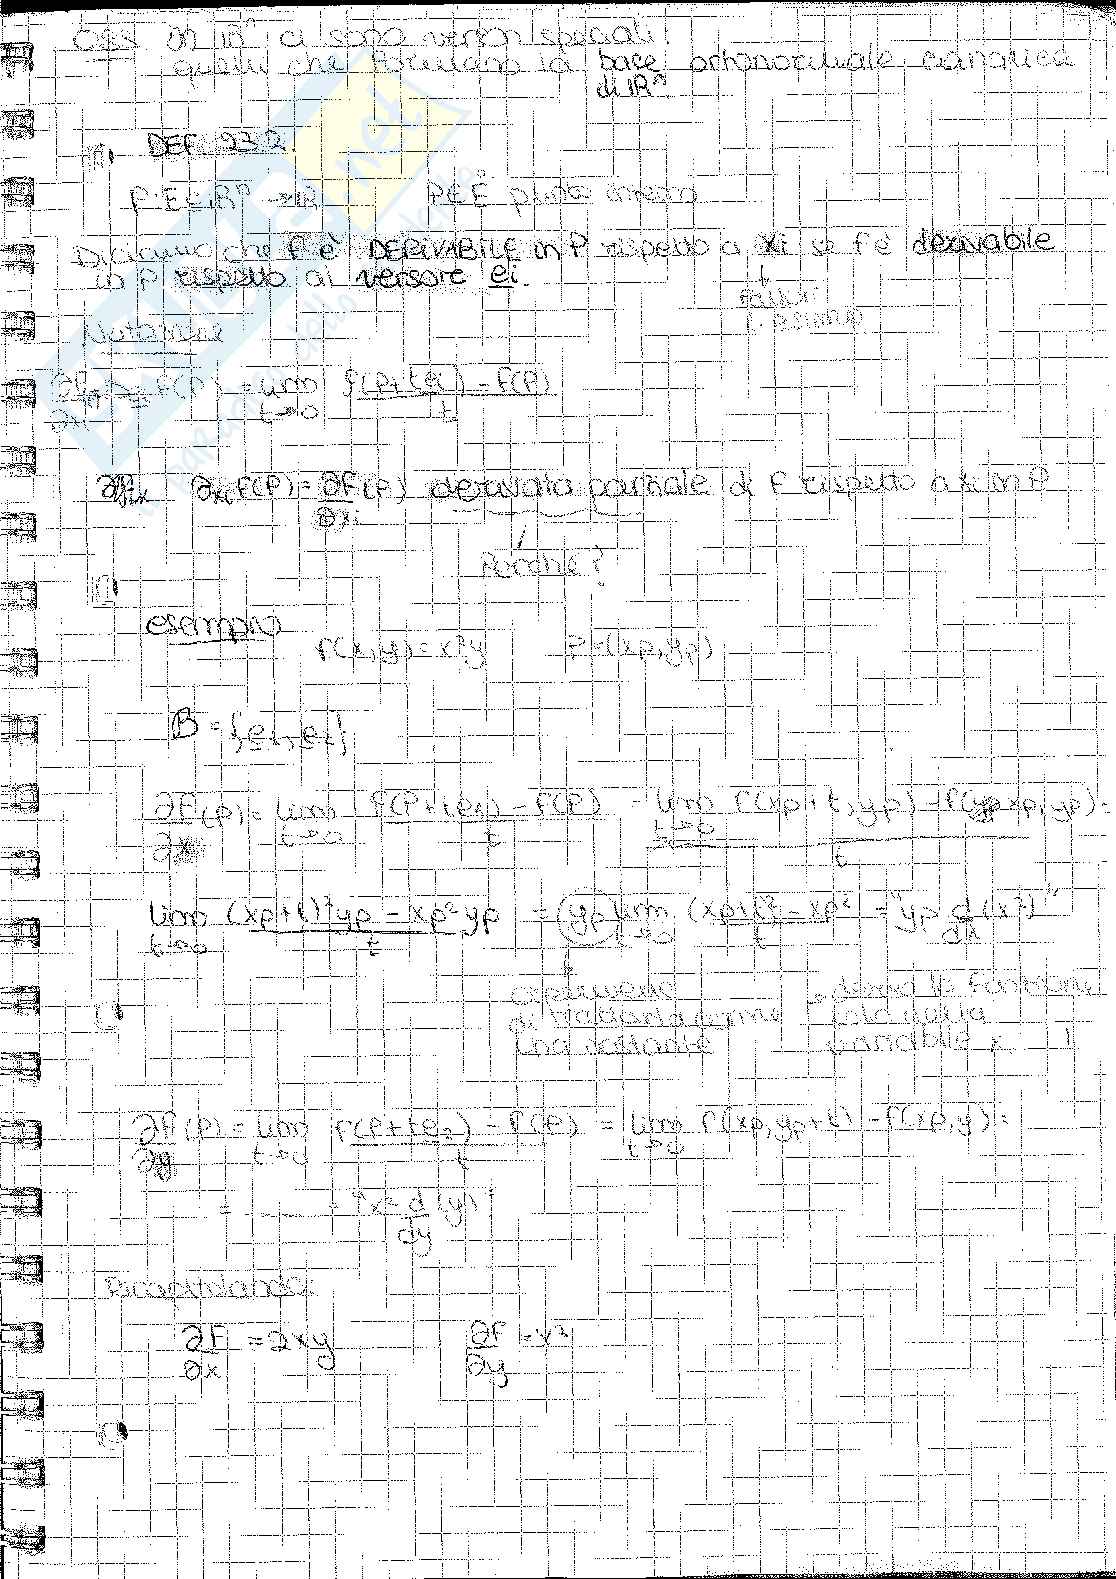 OSS in ℝⁿ ci sono versori speciali:
quelli che formano la base ortonormale canonica
di ℝⁿ.
DEF 23.2.
f: E⊂ℝⁿ → ℝ P∈E° punto interno
Diciamo che f è DERIVABILE in P rispetto a xi se f è derivabile
in P rispetto al versore ei.
Notazione
f(P) = lim t→0 (f(P+tei) - f(P))/t
∂xi f(P) = ∂f/∂xi (P) derivata parziale di f rispetto a xi in P
Perché?
esempio
f(x,y) = x²y P=(xp,yp)
B = {e1, e2}
∂f/∂x (P) = lim t→0 (f(P+te1) - f(P))/t = lim t→0 (f(xp+t,yp) - f(xp,yp))/t =
lim t→0 ((xp+t)²yp - xp²yp)/t = yp lim t→0 ((xp+t)² - xp²)/t = "yp d/dx (x²)"
di trattarla come
una costante
derivo la funzione
solo nella
variabile x
∂f/∂y (P) = lim t→0 (f(P+te2) - f(P))/t = lim t→0 (f(xp,yp+t) - f(xp,y))/t =
= ...... = "x² d/dy (y)"
Ricapitolando:
∂f/∂x = 2xy ∂f/∂y = x²